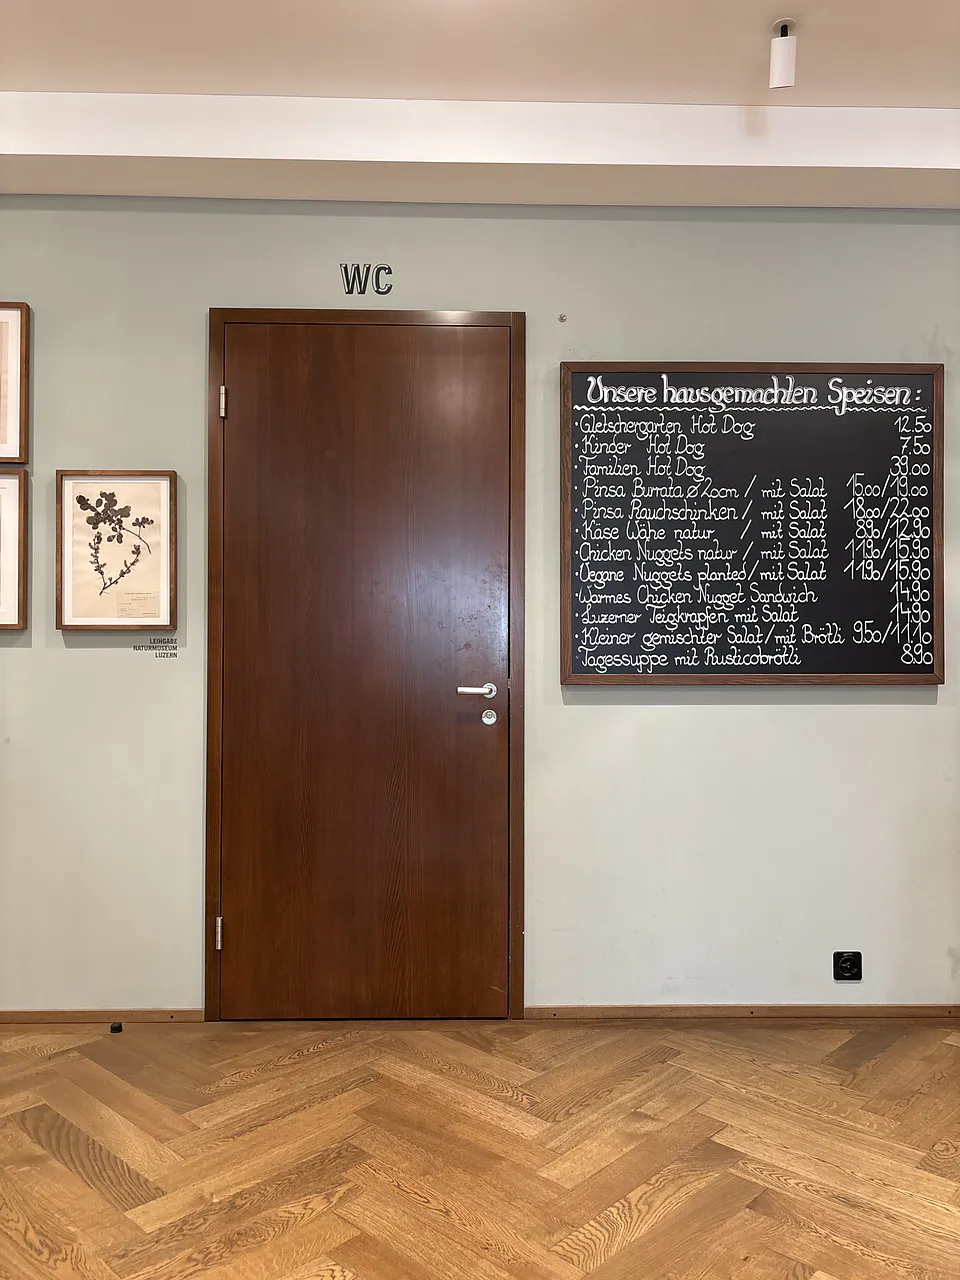 WC
LEIHGABE
NATURMUSEUM
LUZERN
Unsere hausgemachten Speisen:
· Gletschergarten Hot Dog 12.50
· Kinder Hot Dog 7.50
· Familien Hot Dog 39.00
· Pinsa Burrata ø 20cm / mit Salat 15.00/19.00
· Pinsa Rauchschinken / mit Salat 18.00/22.00
· Käse Wähe natur / mit Salat 8.90/12.90
· Chicken Nuggets natur / mit Salat 11.90/15.90
· Vegane Nuggets planted / mit Salat 11.90/15.90
· Warmes Chicken Nugget Sandwich 14.90
· Luzerner Teigkrapfen mit Salat 14.90
· Kleiner gemischter Salat / mit Brötli 9.50/11.10
· Tagessuppe mit Rusticobrötli 8.90